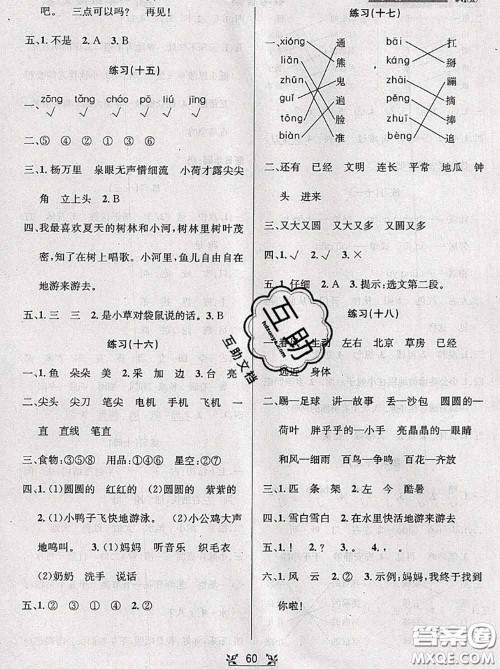 吧。 三点可以吗? 再见!
五、1.不是 2.A 3.B
练习(十五)
一、zōng tǎng cháo pō liú jīng
√ √ √ √ √ √
二、⑤ ④ ① ② ⑥ ③
三、1.杨万里 泉眼无声惜细流 小荷才露尖尖
角 立上头 2.B
四、我最喜欢夏天的树林和小河,树林里树叶茂
密,鸟儿在树上唱歌。小河里,鱼儿自由自在
地游来游去。
五、1.三 三 2.是小草对袋鼠说的话。 3.B
练习(十六)
一、鱼 朵朵 美 2.采 加 边 3.台 亮
二、尖头 尖刀 笔尖 电机 手机 飞机 一
直 直线 笔直
三、食物:③⑤⑧ 用品:①④⑥ 星空:②⑦
四、1.(1)圆圆的 红红的 (2)圆圆的 紫紫的
2.(1)小鸭子飞快地游泳。 (2)小公鸡大声
地鸣叫。 3.(1)妈妈 听音乐 织毛衣
(2)奶奶 洗手 说话
五、1.① ② ④ ③ 2.② ⑤
练习(十七)
一、xióng 通 bāi 扛
liǎn 熊 káng 掰
zhǔn 鬼 zhuī 蹦
guǐ 遍 zhāi 捧
tōng 脸 pěng 摘
biàn 准 bèng 追
二、还有 已经 文明 连长 平常 地瓜 钟
头 进来
三、又大又圆 又大又圆 又圆又多
四、1.√ 2.√ 3.×
五、1.仔细 2.A 3.提示:选文第二段。
练习(十八)
生动 左右 北京 草房 已经
远近 身体
二、踢—足球 讲—故事 丢—沙包 圆圆的—
荷叶 胖乎乎的—小手 亮晶晶的—眼睛
和风—细雨 百鸟—争鸣 百花—开放
三、1.匹 条 架 2.优 金 酷暑
四、1.雪白雪白 2.在水里快活地游来游去
五、! 。 ? ! ,
六、1.风 云 月 2.② 3.示例:妈妈,我终于找到
你啦!
互助
互助文档
60
答案圈
MXQE.COM